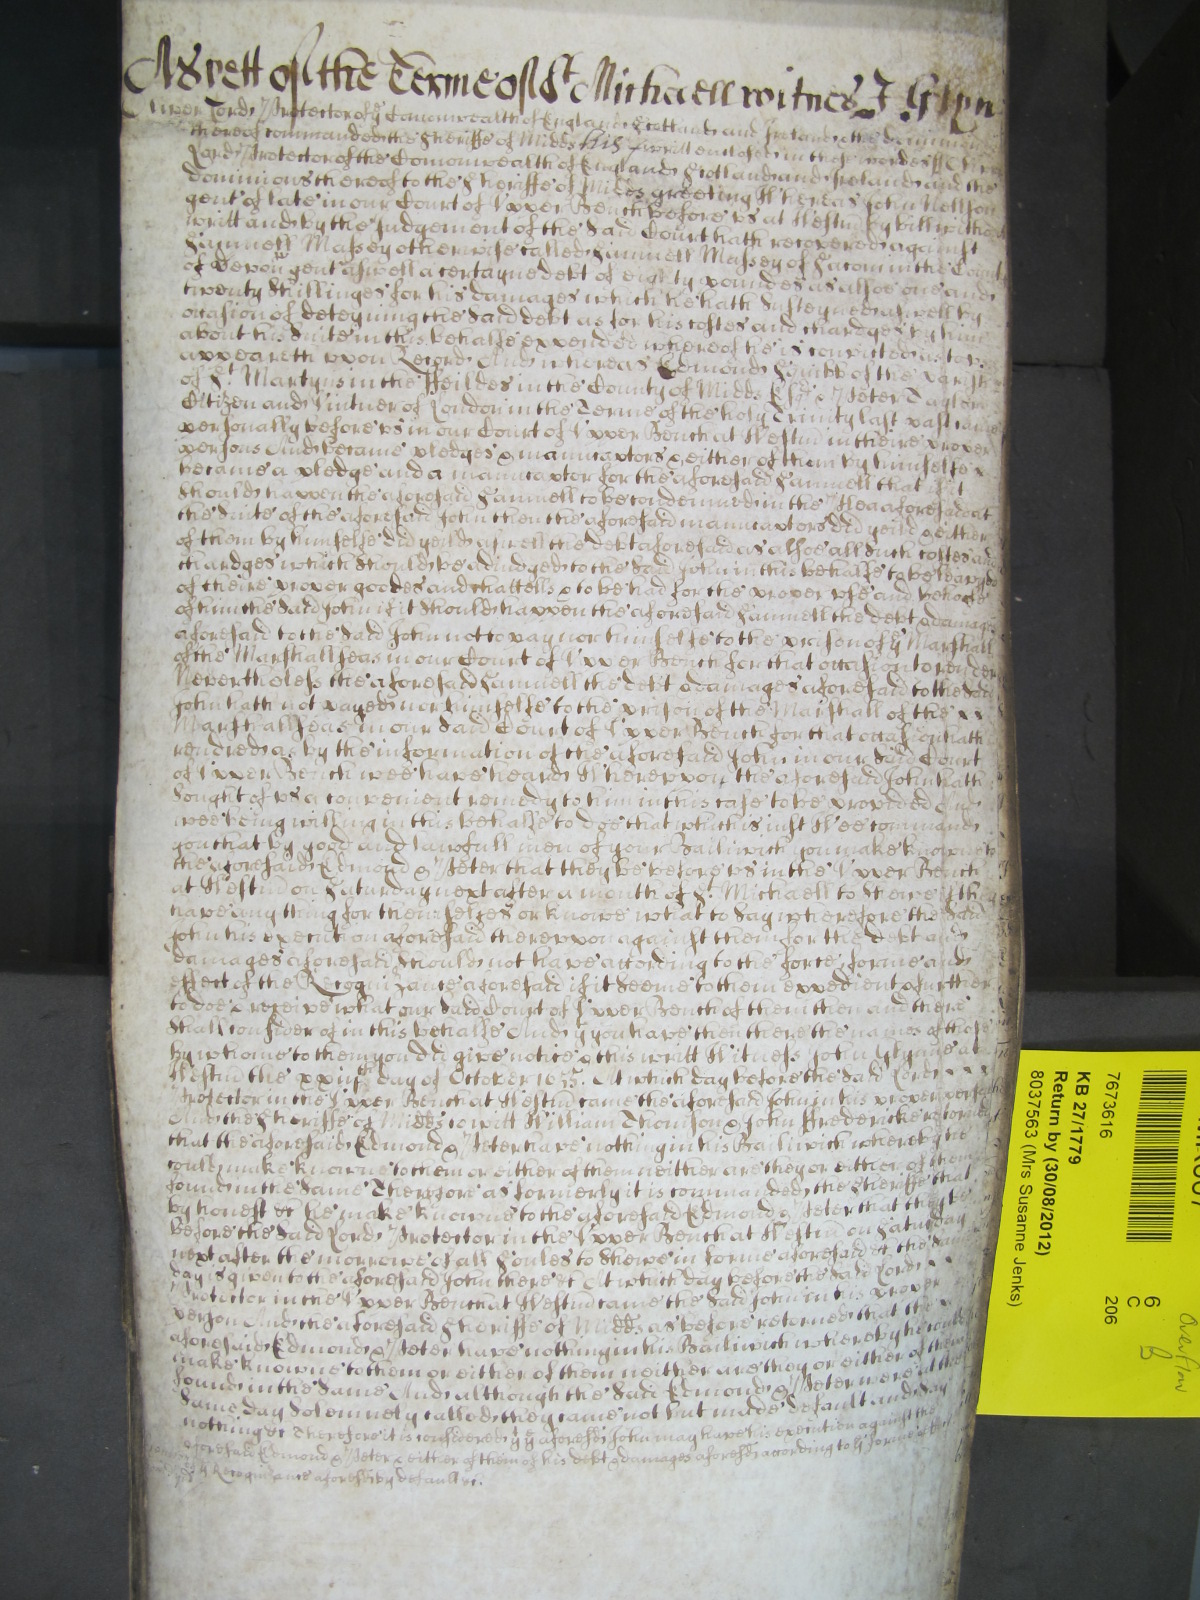 As yett of the Terme of St Michaell witnes J Glyn
Oliver Lord Protector of ye Comonwealth of England Scotland and Ireland & the dominions
thereof commanded the Sheriffe of Midds his writt enclosed in these wordes ss Oliver
Lord Protector of the Comonwealth of England Scotland and Ireland and the
dominions thereof to the Sheriffe of Midds greeting Whereas John Nellson
gent of late in our Court of Upper Bench before us at Westm by bill without
writt and by the Judgement of the said Court hath recovered against
Samuell Massey otherwise called Samuell Massey of in the County
of Devon gent aswell a certayne debt of eighty poundes as alsoe one and
twenty shillinges for his damages which he hath susteyned aswell by
occasion of deteyning the said debt as for his costes and chardges by him
about his suite in this behalfe expended whereof he is convicted as to us
appeareth upon Record And whereas Edmond Squibb of the parish
of St Martyns in the ffeildes in the County of Midds Esqr & Peter Taylor
Citizen and Vintner of London in the Terme of the holy Trinity last past came
personally before us in our Court of Upper Bench at Westm in theire proper
persons And became pledges & manucaptors & either of them by himselfe
became a pledge and a manucaptor for the aforesaid Samuell that if it
should happen the aforesaid Samuell to be condemned in the Plea aforesaid at
the suite of the aforesaid John then the aforesaid manucaptors did yeild & either
of them by himselfe did yeild aswell the debt aforesaid as alsoe all such costes and
chardges which should be adiudged to the said John in this behalfe to be leavyed
of theire proper goodes and chattells & to be had for the proper use and behoofe
of him the said John if it should happen the aforesaid Samuell the debt & damages
aforesaid to the said John not to pay nor himselfe to the prison of ye Marshall
of the Marshallseas in our Court of Upper Bench for that occasion to render
Nevertheless the aforesaid Samuell the debt & damages aforesaid to the said
John hath not payed nor himselfe to the prison of the Marshall of the
Marshallseas in our said Court of Upper Bench for that occasion hath
rendred as by the information of the aforesaid John in our said Court
of Upper Bench wee have heard Whereupon the aforesaid John hath
sought of us a convenient remedy to him in this case to be provided And
wee being willing in this behalfe to doe that which is iust Wee command
you that by good and lawfull men of your Bailiwick you make knowne to
the aforesaid Edmond & Peter that they be before us in the Upper Bench
at Westm on Saturday next after a month of St Michaell to shewe if they
have any thing for themselfes or knowe what to say wherefore the said
John his execution aforesaid thereupon against them for the debt and
damages aforesaid should not have according to the force forme and
effect of the Recognizance aforesaid if it seeme to them expedient & further
to doe & receive what our said Court of Upper Bench of them then and there
shall consider of in this behalfe And yt you have then there the names of those
by whome to them you did give notice & this writt Witness John Glynne at
Westm the xxiiith day of October 1655. At which day before the said Lord
Protector in the Upper Bench at Westm came the aforesaid John in his proper person
And the Sheriffe of Midds to witt William Thomson & John ffredericke returned
that the aforesaid Edmond & Peter have nothing in his Bailiwick whereby he
could make knowne to them or either of them neither are they or either of them
found in the same Therefore as formerly it is commanded the Sheriffe that
by honest &c he make knowne to the aforesaid Edmond & Peter that they be
before the said Lord Protector in the Upper Bench at Westm on Saturday
next after the morrowe of all Soules to shewe in forme aforesaid &c the same
day is given to the aforesaid John there &c At which day before the said Lord
Protector in the Upper Bench at Westm came the said John in his proper
person And the aforesaid Sheriffe of Midds as before returned that the
aforesaid Edmond & Peter have nothing in his Bailiwick whereby he could
make knowne to them or either of them neither are they or either of them
found in the same And although the said Edmond & Peter were at the
same day solemnely called they came not but made default and say
nothing &c Therefore it is considered yt ye aforesd John may have his execution against the
aforesaid Edmond & Peter & either of them of his debt & damages aforesd according to ye forme
ye Recognizance aforesd by default &c.
7673616
KB 27/1779
Return by (30/08/2012)
8037563 (Mrs Susanne Jenks)
6
C
206
Overflow